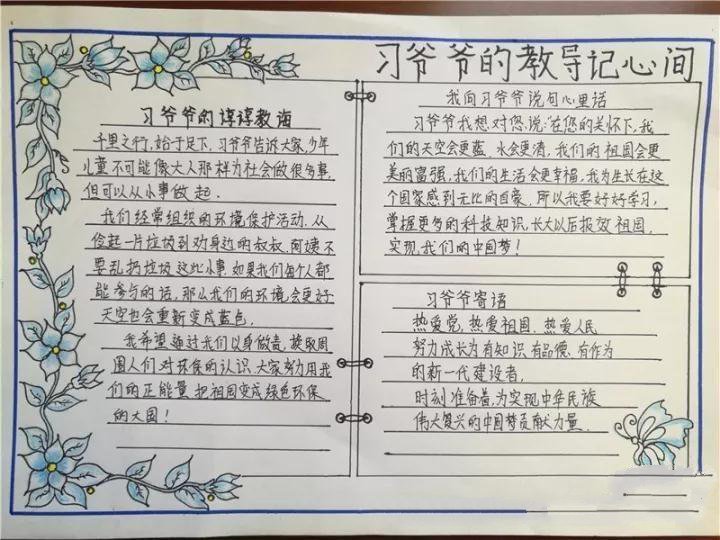 习爷爷的教导记心间
习爷爷的谆谆教诲
千里之行,始于足下,习爷爷告诉大家,少年
儿童不可能像大人那样为社会做很多事,
但可以从小事做起.
我们经常组织的环境保护活动.从
捡起一片垃圾到劝身边的叔叔、阿姨不
要乱扔垃圾这些小事.如果我们每个人都
能参与的话,那么我们的环境会更好
天空也会重新变成蓝色.
我希望通过我们以身做责,换取周
围人们对环保的认识.大家努力用我
们的正能量把祖国变成绿色环保
的大国!
我向习爷爷说句心里话
习爷爷我想对您说:“在您的关怀下,我
们的天空会更蓝、水会更清,我们的祖国会更
美丽富强,我们的生活会更幸福,我为生长在这
个国家感到无比的自豪.所以我要好好学习,
掌握更多的科技知识,长大以后报效祖国,
实现我们的中国梦!
习爷爷寄语
热爱党、热爱祖国、热爱人民
努力成长为有知识、有品德、有作为
的新一代建设者,
时刻准备着,为实现中华民族
伟大复兴的中国梦贡献力量.